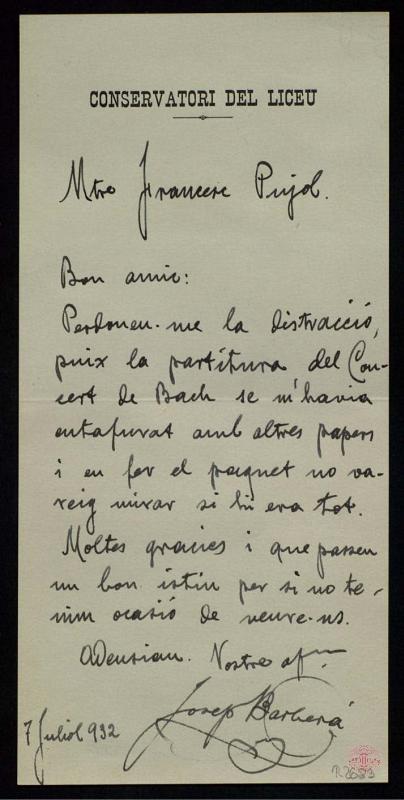 CONSERVATORI DEL LICEU
Mtre Francesc Pujol.
Bon amic:
Perdoneu-me la distracció,
puix la partitura del Con-
cert de Bach se m'havia
entafurat amb altres papers
i en fer el paquet no va-
reig mirar si hi era tot.
Moltes gracies i que passeu
un bon istiu per si no te-
nim ocasió de veure-ns.
Adeusiau. Vostre afm
Josep Barberá
7 Juliol 932
R.2653